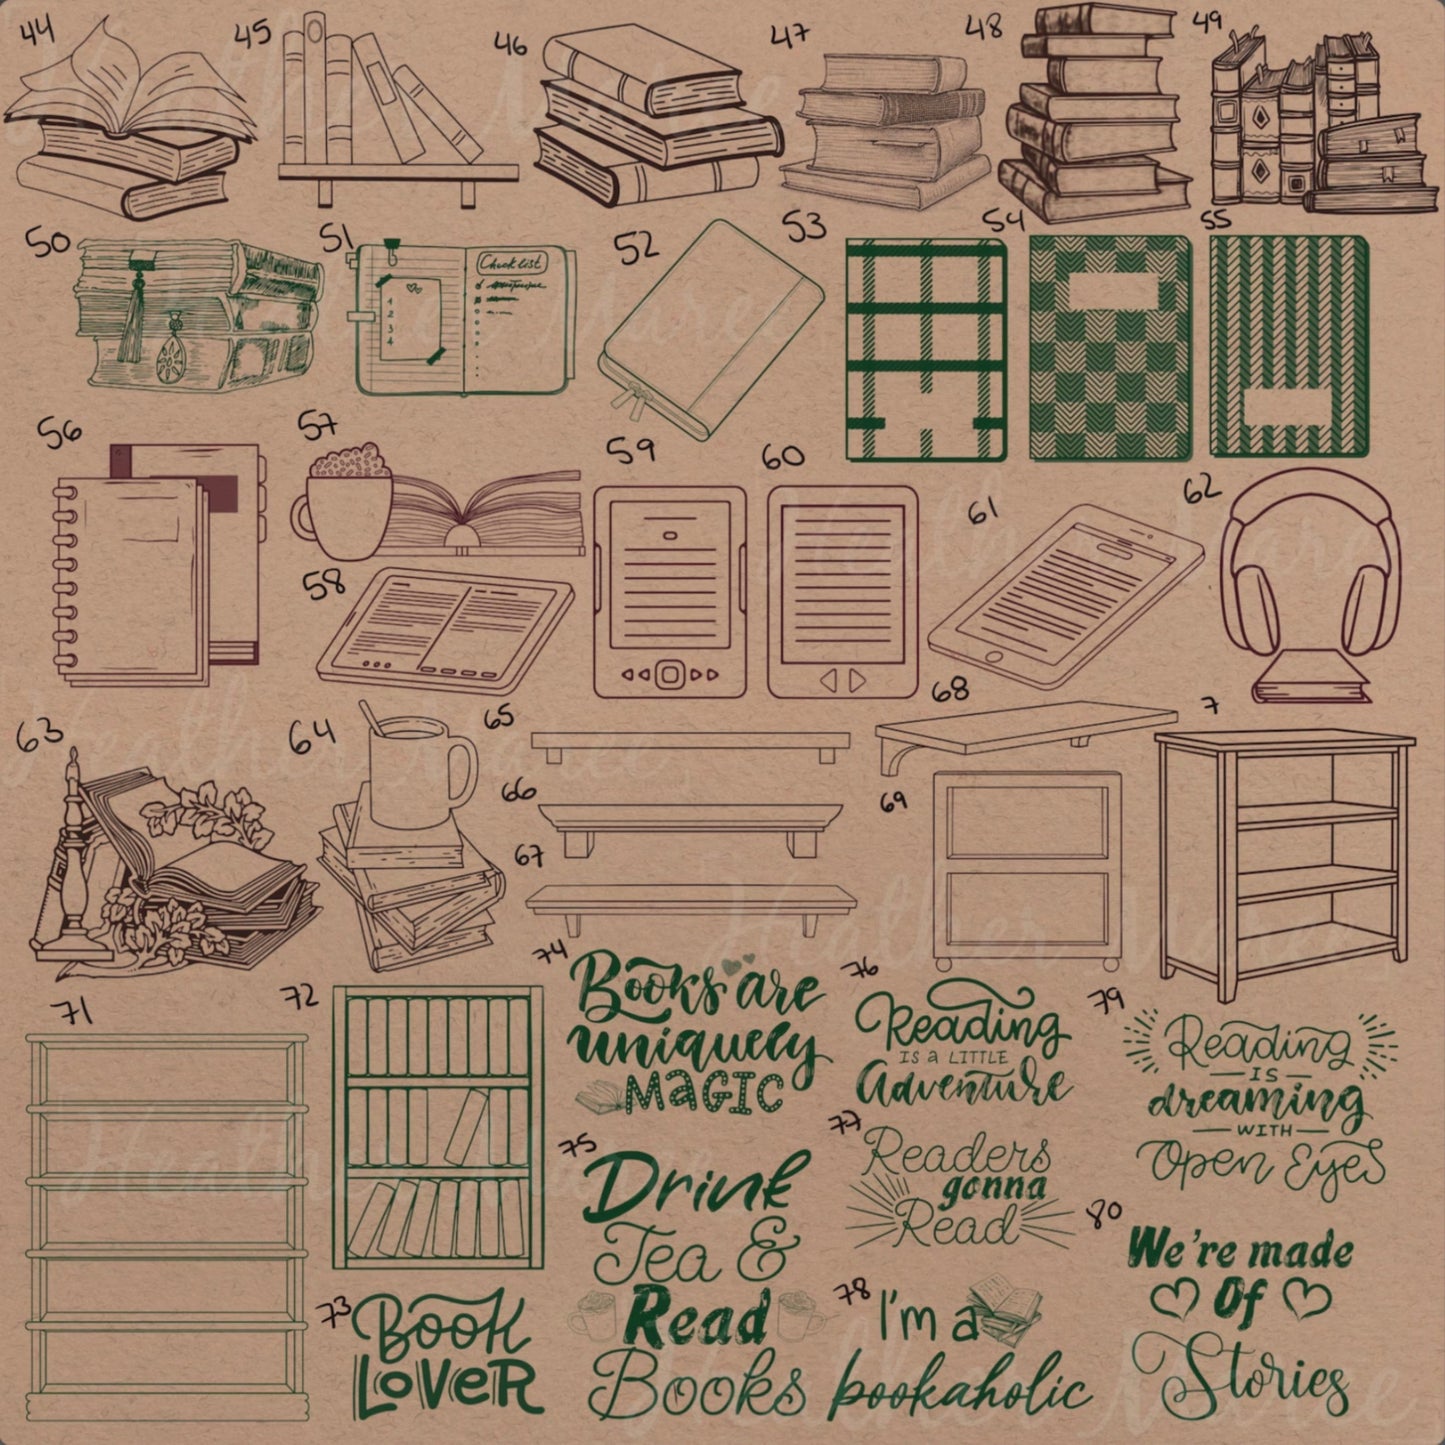 44
45
46
47
48
49
50
51
Checklist
1
2
3
4
52
53
54
55
56
57
58
59
60
61
62
63
64
65
66
67
68
69
7
71
72
73
BOOK
LOVER
74
Books are
uniquely
MAGIC
75
Drink
Tea &
Read
Books
76
Reading
IS a LITTLE
Adventure
77
Readers
gonna
Read
78
I'm a
bookaholic
79
Reading
IS
dreaming
WITH
Open Eyes
80
We're made
Of
Stories
Heather Maree